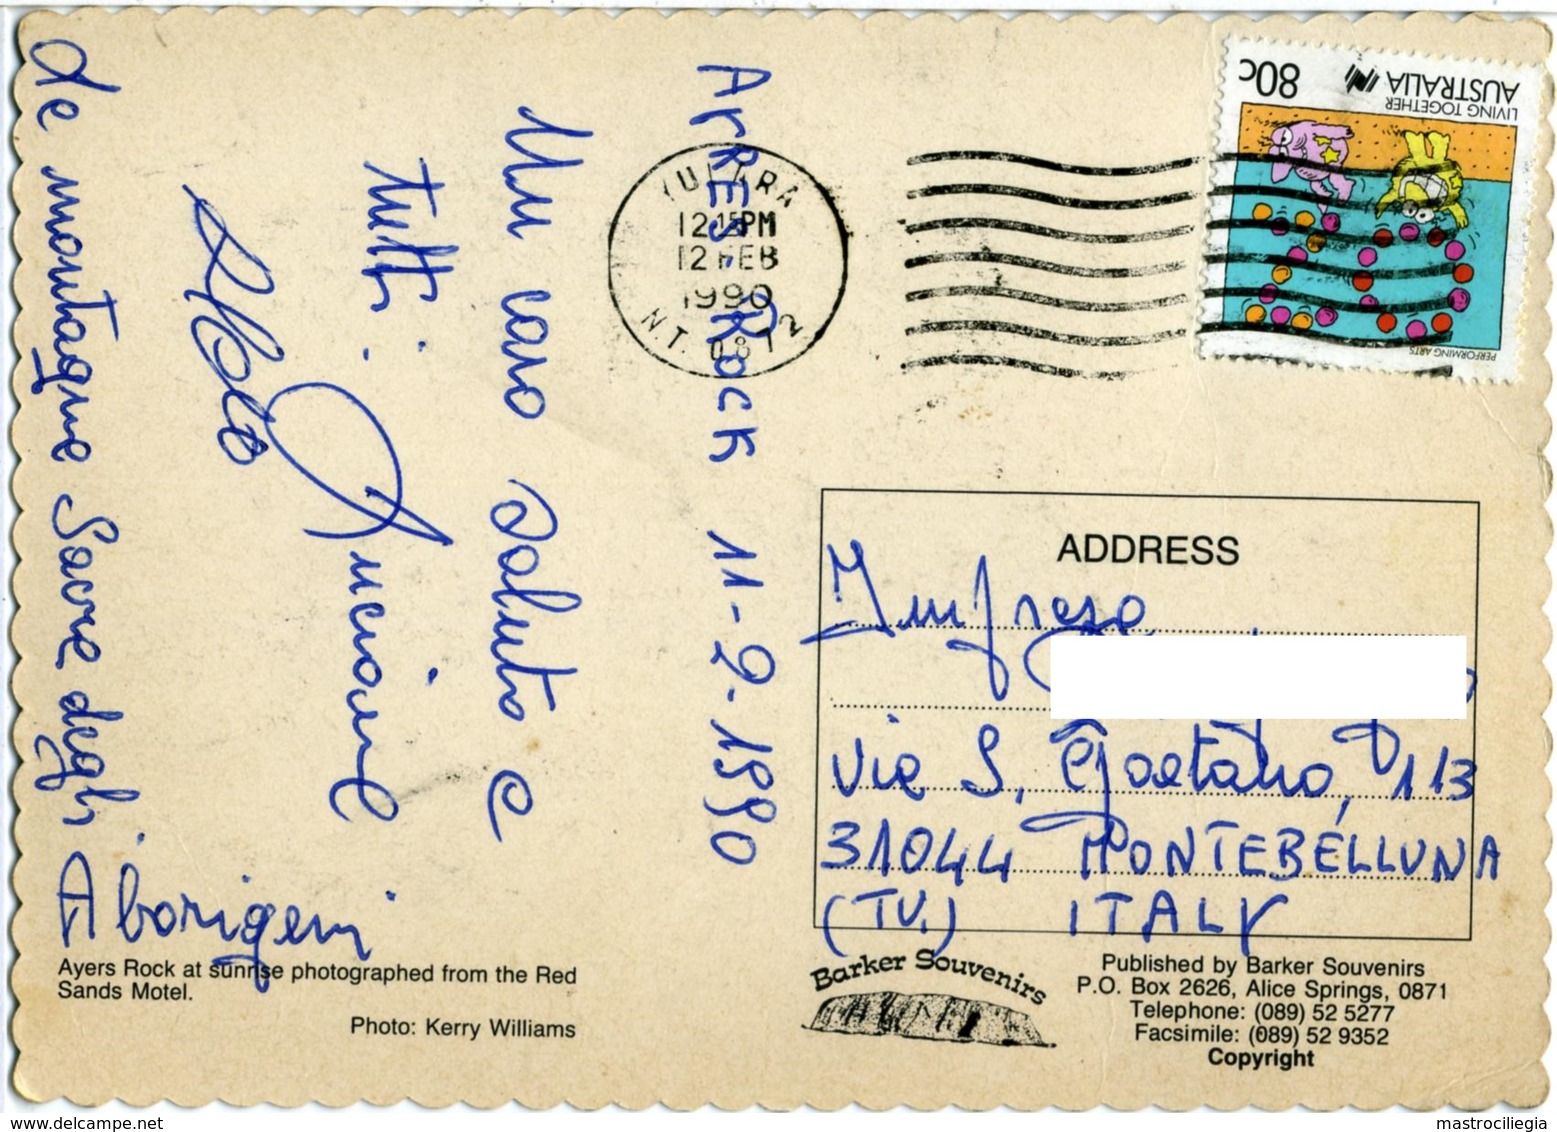 ArRES-Rock 11-2-1990
Un caro saluto e
tutti.
Luciano
Le montagne Sacre degli
Aborigeni
YULARA
12.15PM
12 FEB
1990
NT. 0872
80c
AUSTRALIA
LIVING TOGETHER
PERFORMING ARTS
ADDRESS
via S. Gaetano, 113
31044 MONTEBELLUNA
(TV.) ITALY
Ayers Rock at sunrise photographed from the Red
Sands Motel.
Photo: Kerry Williams
Barker Souvenirs
Published by Barker Souvenirs
P.O. Box 2626, Alice Springs, 0871
Telephone: (089) 52 5277
Facsimile: (089) 52 9352
Copyright
delcampe.net
mastrociliegia